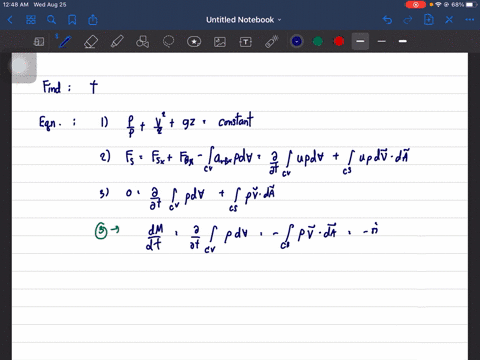 12:48 AM Wed Aug 25
68%
Untitled Notebook
Find : t
Eqn. : 1) P/ρ + V²/2 + gz = constant
2) Fs = Fsx + FBx - ∫cv arfx ρd∀ = ∂/∂t ∫cv uρd∀ + ∫cs uρdV⃗ · dA⃗
3) 0 = ∂/∂t ∫cv ρd∀ + ∫cs ρV⃗ · dA⃗
③ → dM/dt = ∂/∂t ∫cv ρd∀ = - ∫cs ρV⃗ · dA⃗ = -ṁ